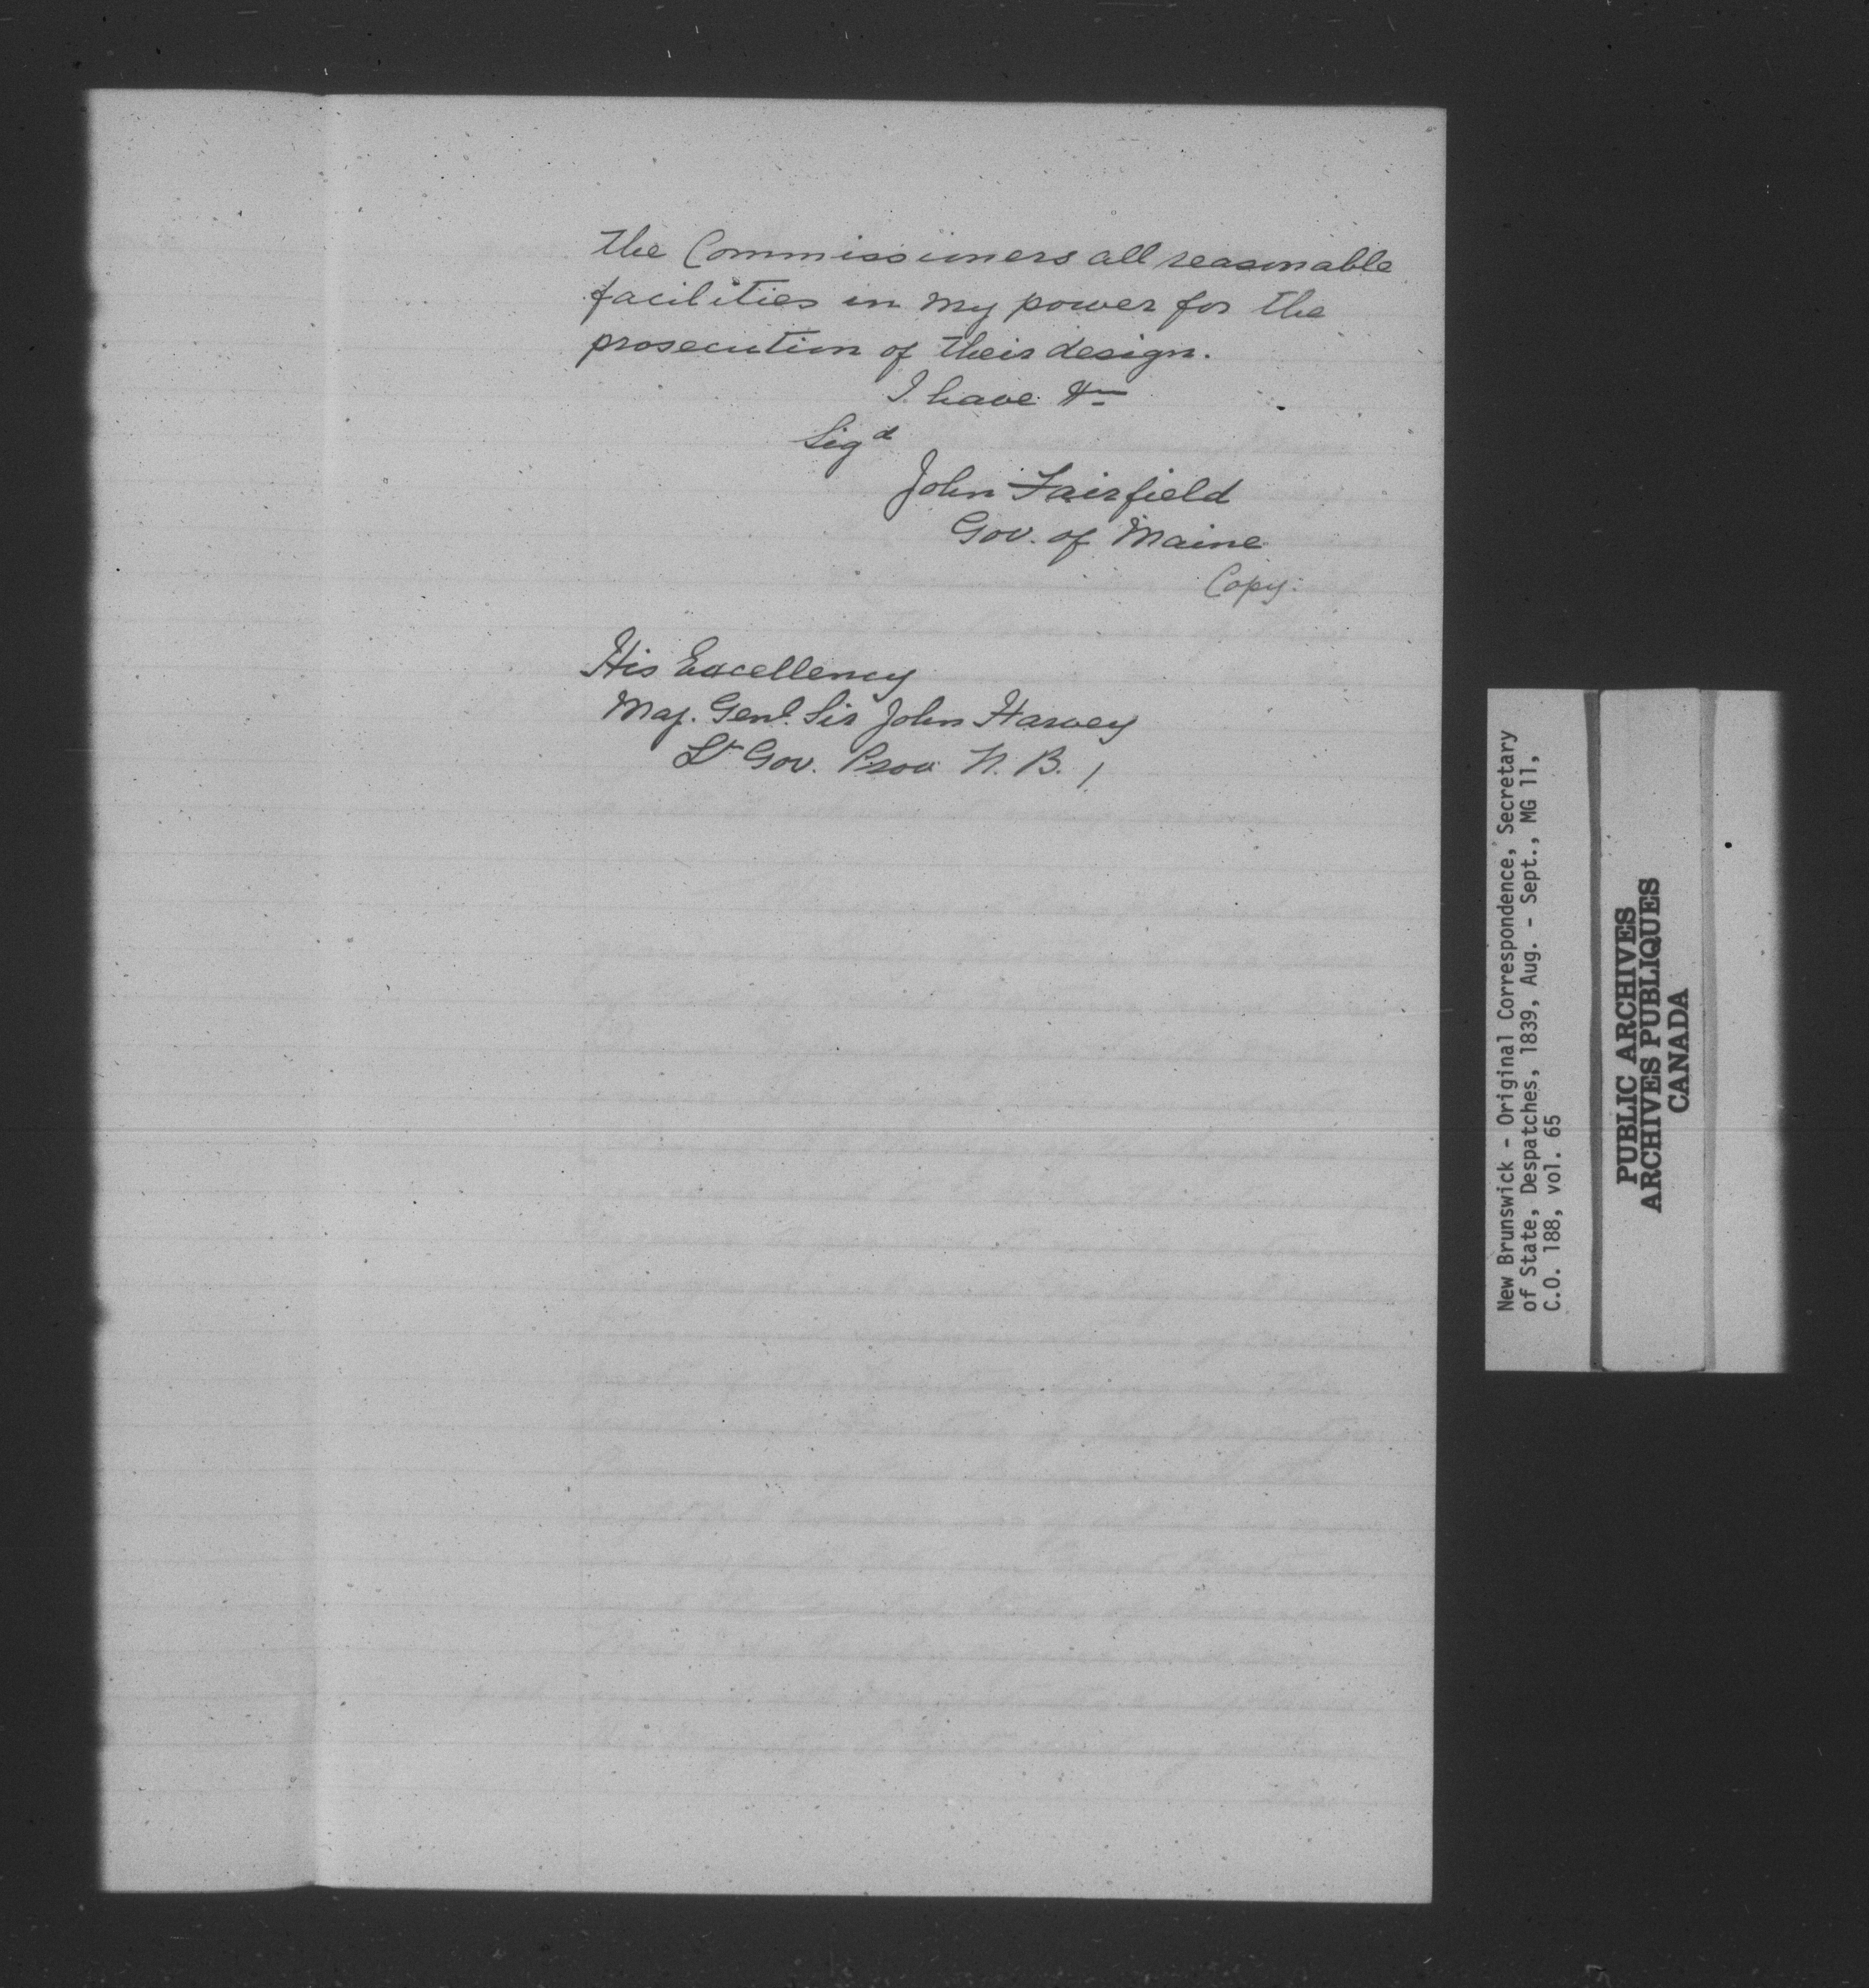 the Commissioners all reasonable
facilities in my power for the
prosecution of their design.
I have &c
Sigd
John Fairfield
Gov. of Maine
Copy.
His Excellency
Maj. Genl. Sir John Harvey
Lt Gov. Prov N. B. /
New Brunswick - Original Correspondence, Secretary
of State, Despatches, 1839, Aug. - Sept., MG 11,
C.O. 188, vol. 65
PUBLIC ARCHIVES
ARCHIVES PUBLIQUES
CANADA